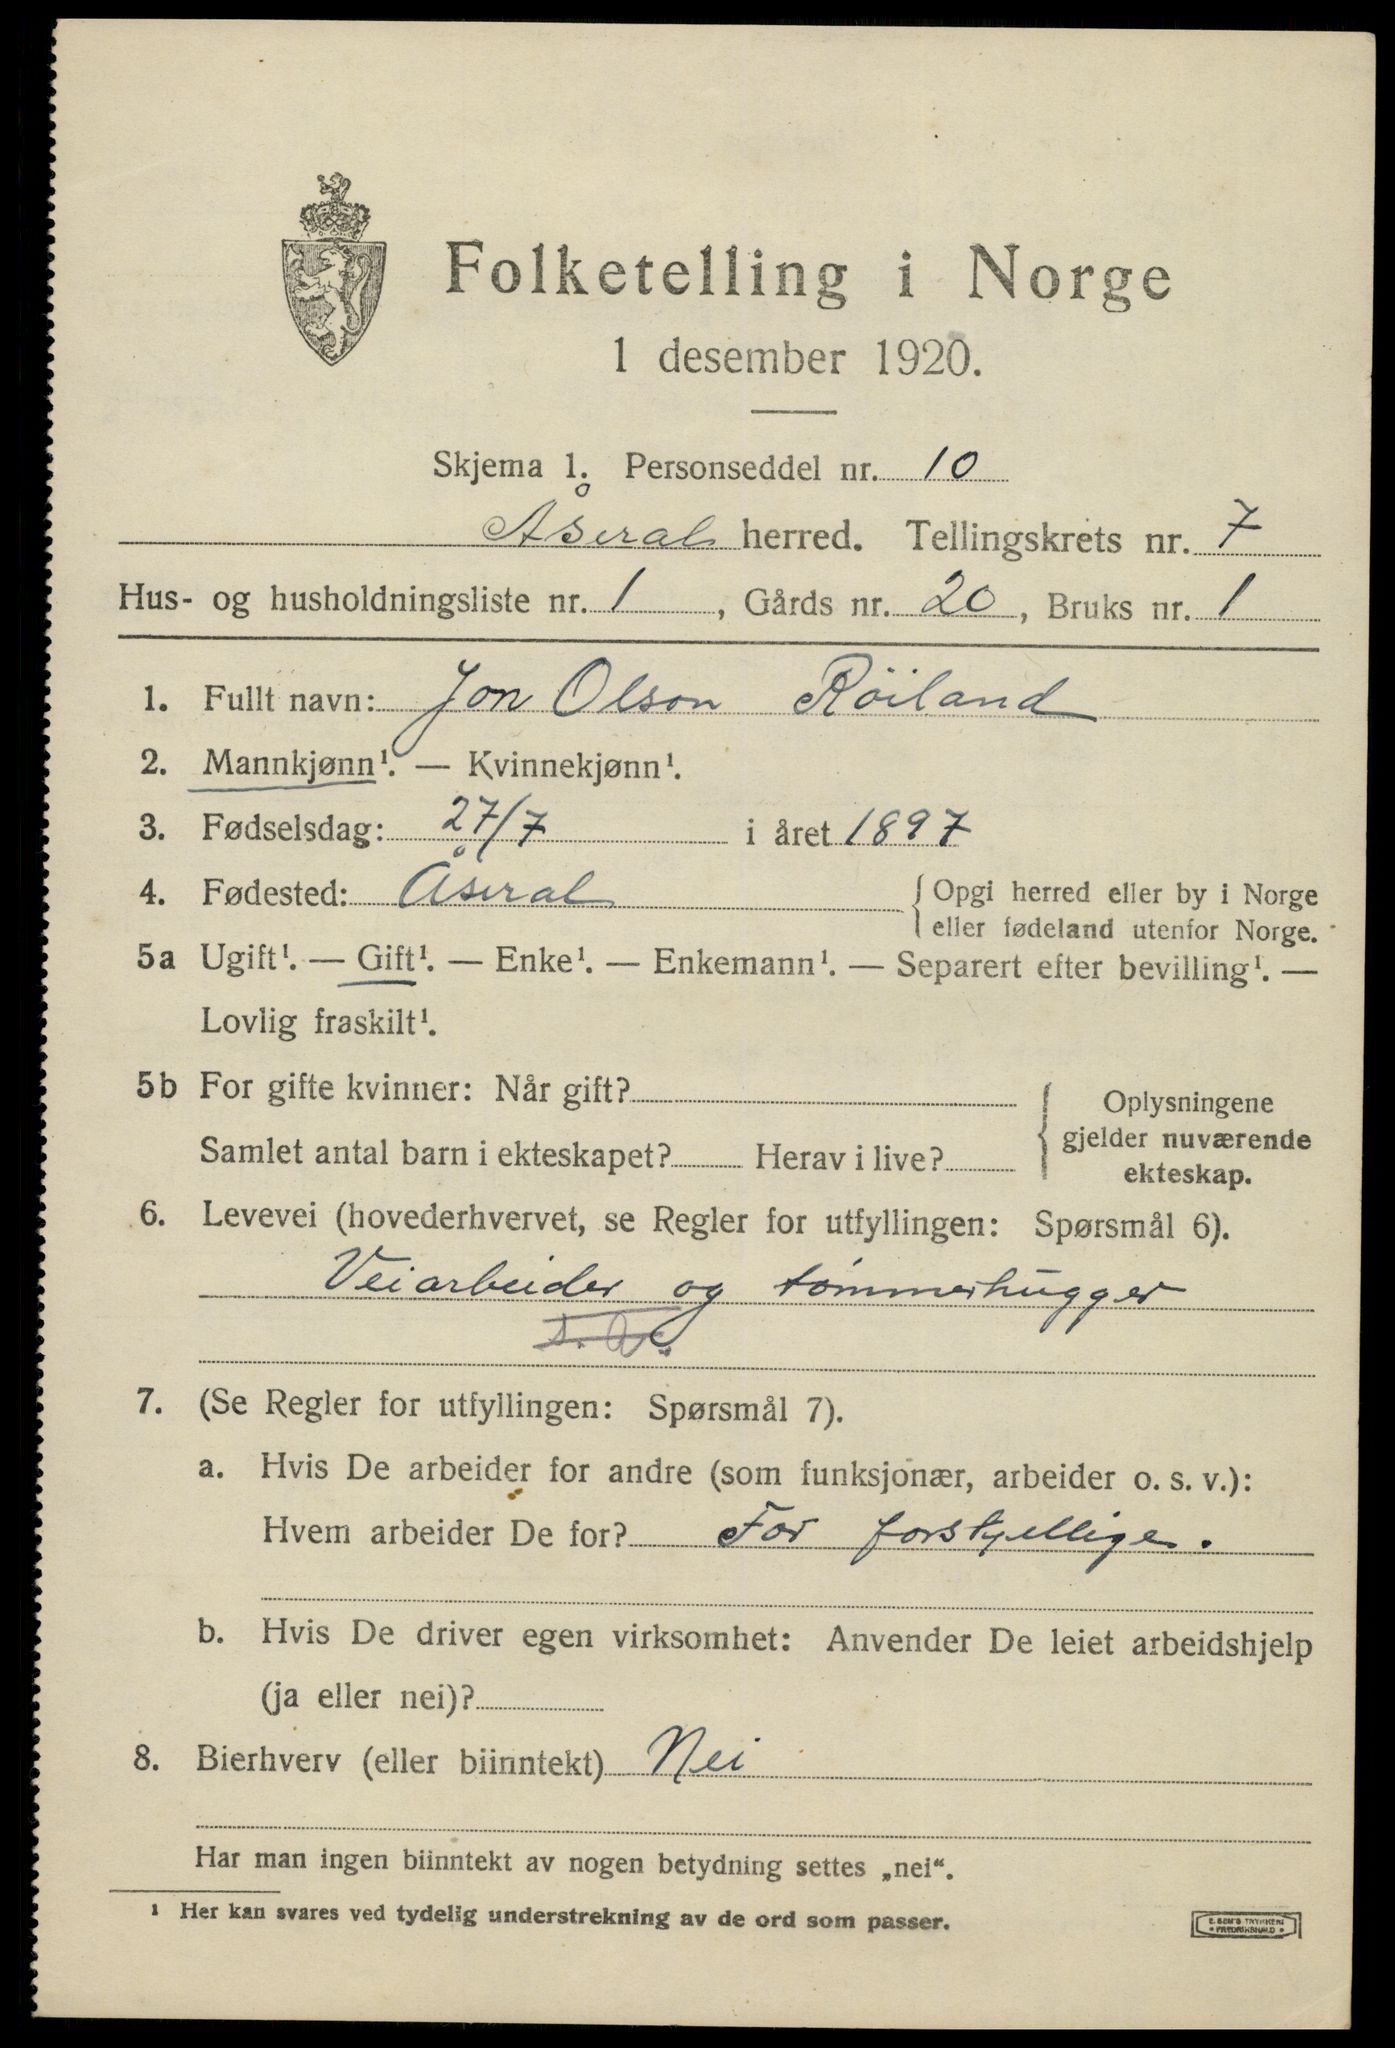 Folketelling i Norge
1 desember 1920.
Skjema 1. Personseddel nr. 10
Åseral herred. Tellingskrets nr. 7
Hus- og husholdningsliste nr. 1, Gårds nr. 20, Bruks nr. 1
1. Fullt navn: Jon Olson Röiland
2. Mannkjønn¹. — Kvinnekjønn¹.
3. Fødselsdag: 27/7 i året 1897
4. Fødested: Åseral
Opgi herred eller by i Norge
eller fødeland utenfor Norge.
5a Ugift¹. — Gift¹. — Enke¹. — Enkemann¹. — Separert efter bevilling¹. —
Lovlig fraskilt¹.
5b For gifte kvinner: Når gift?
Samlet antal barn i ekteskapet? Herav i live?
Oplysningene
gjelder nuværende
ekteskap.
6. Levevei (hovederhvervet, se Regler for utfyllingen: Spørsmål 6).
Veiarbeider og tømmerhugger
7. (Se Regler for utfyllingen: Spørsmål 7).
a. Hvis De arbeider for andre (som funksjonær, arbeider o. s. v.):
Hvem arbeider De for? For forskjellige.
b. Hvis De driver egen virksomhet: Anvender De leiet arbeidshjelp
(ja eller nei)?
8. Bierhverv (eller biinntekt) Nei
Har man ingen biinntekt av nogen betydning settes „nei“.
¹ Her kan svares ved tydelig understrekning av de ord som passer.
E. SEM'S TRYKKERI
FREDRIKSHALD